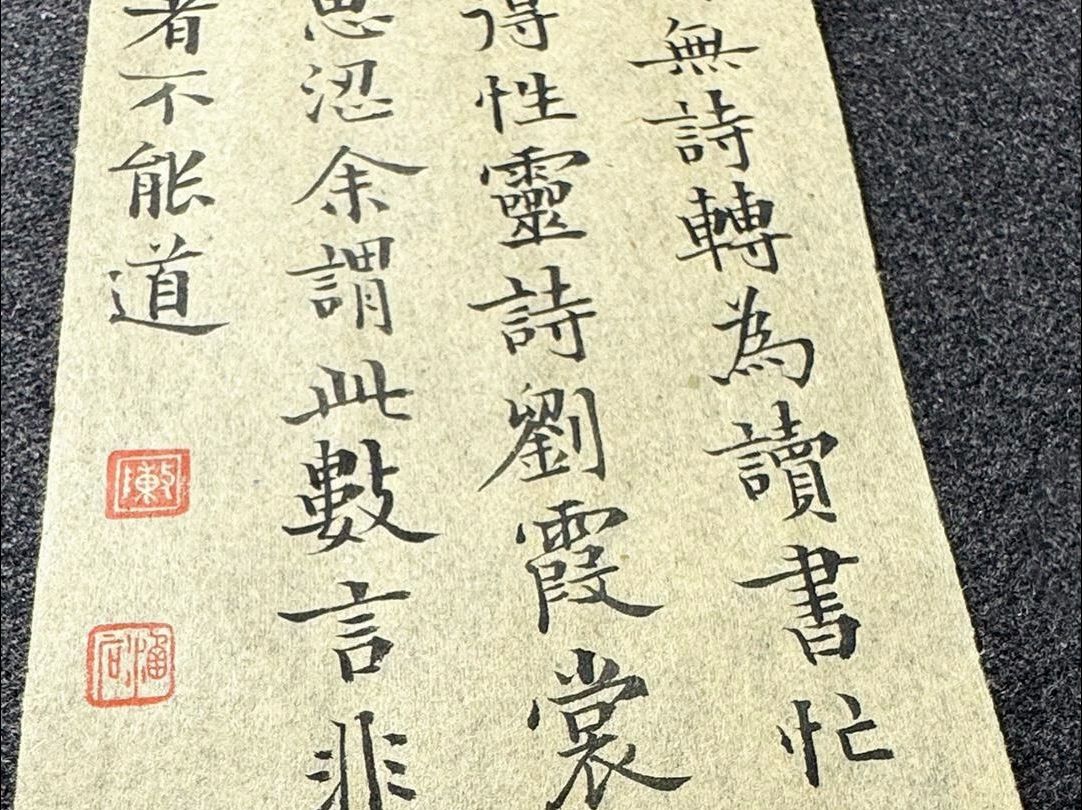 無詩轉為讀書忙
得性靈詩劉霞裳
思澀余謂此數言非
者不能道